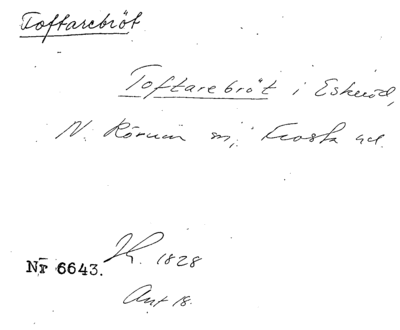 Toftarebröt
Toftarebröt i Eskeröd,
N. Rörum sn, Frosta hd.
Nr 6643. Kr. 1828
Ant 18.